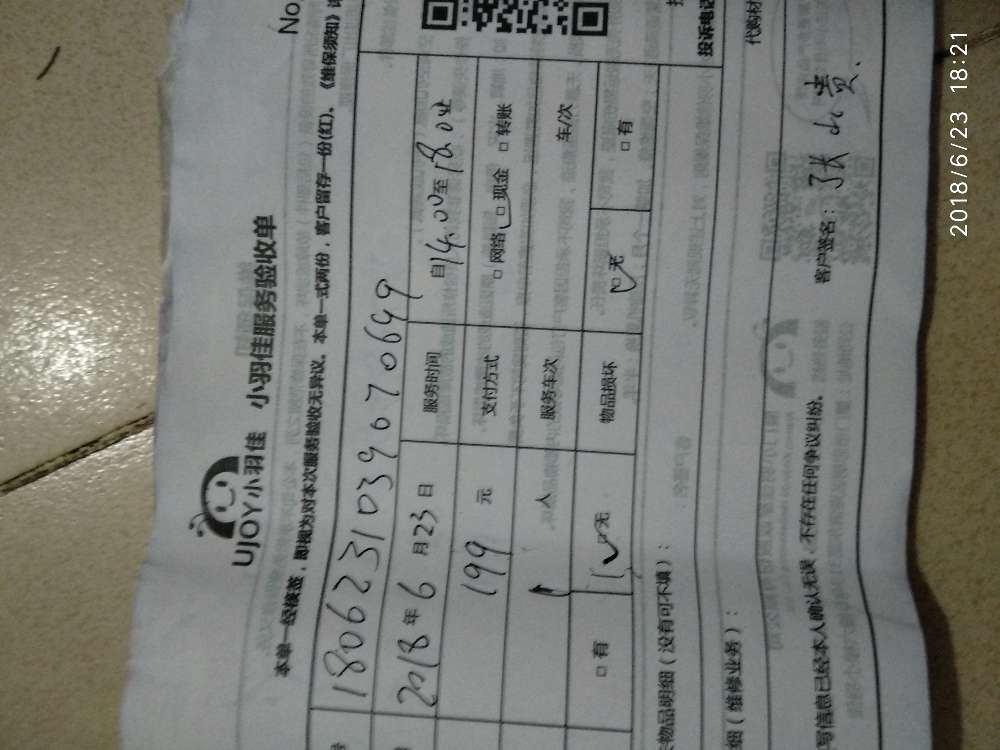 No
UJOY小羽佳 小羽佳服务验收单
本单一经接签，即视为对本次服务验收无异议。本单一式两份，客户留存一份(红)。《维保须知》
号 1806231039670699
2018年6月23日 服务时间 自14:00至18:0止
199元 支付方式 □网络 □现金 □转账
1人 服务车次 车/次
□有 □无 物品损坏 □无 □有
物品明细（没有可不填）：
投诉电话
细（维修业务）：
代购材
写信息已经本人确认无误，不存在任何争议纠纷。 客户签名：张
2018/6/23 18:21